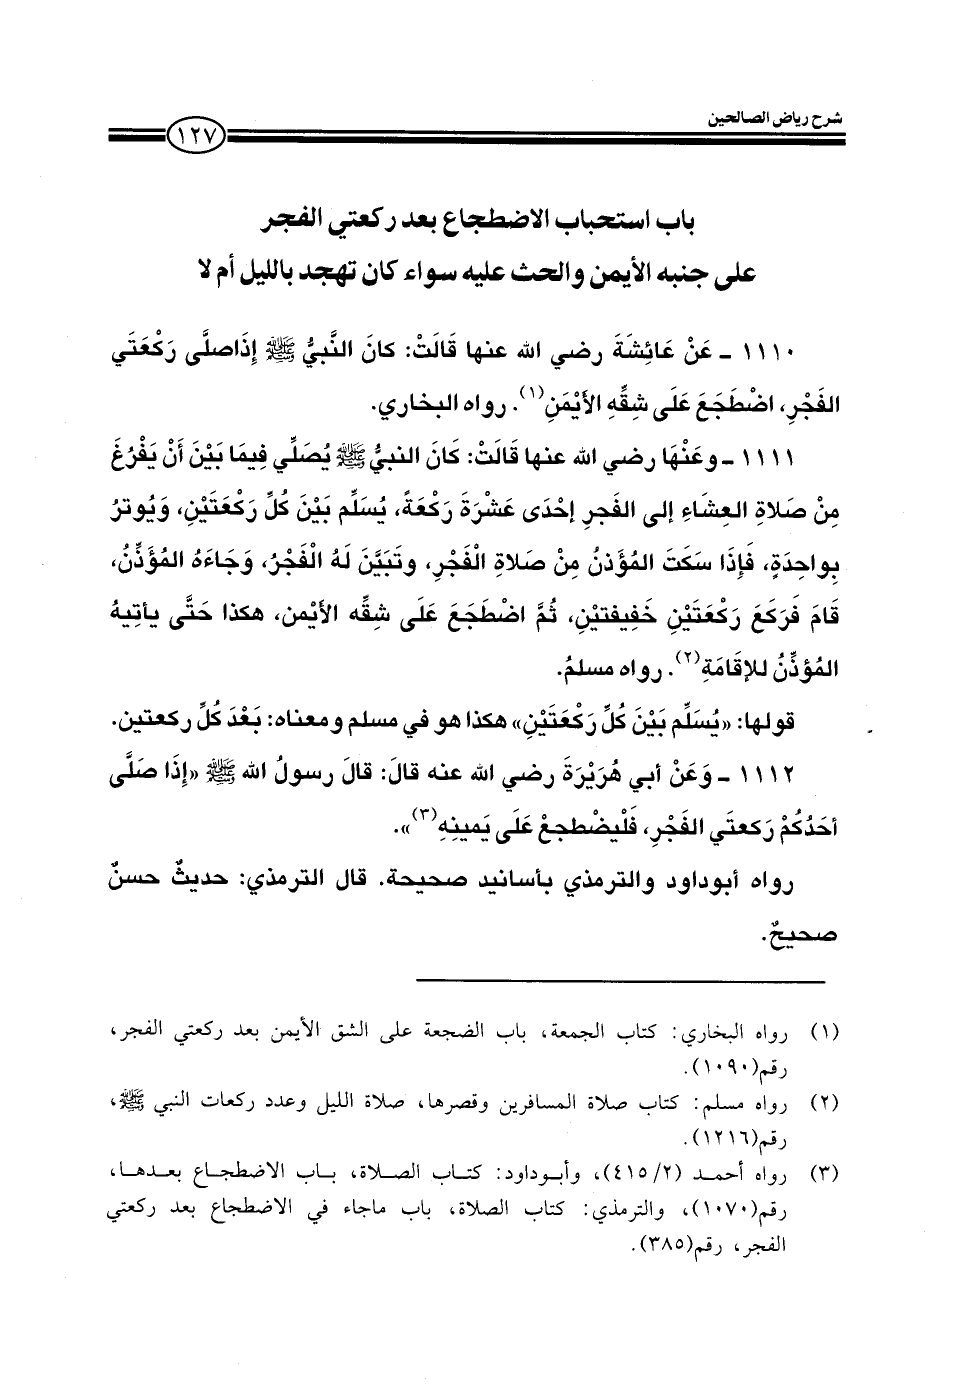 شرح رياض الصالحين
١٢٧
باب استحباب الاضطجاع بعد ركعتي الفجر
على جنبه الأيمن والحث عليه سواء كان تهجد بالليل أم لا
١١١٠ ـ عَنْ عَائِشَةَ رضي الله عنها قَالَتْ: كانَ النَّبيُّ ﷺ إِذَاصلَّى رَكْعَتَي
الفَجْرِ، اضْطَجَعَ عَلَى شِقِّهِ الأَيْمَنِ(١). رواه البخاري.
١١١١ ـ وعَنْهَا رضي الله عنها قَالَتْ: كَانَ النبيُّ ﷺ يُصَلِّي فِيمَا بَيْنَ أَنْ يَفْرُغَ
مِنْ صَلاةِ العِشَاءِ إلى الفَجرِ إحْدَى عَشْرَةَ رَكْعَةً، يُسَلِّم بَيْنَ كُلِّ رَكْعَتَيْنِ، وَيُوترُ
بِواحِدَةٍ، فَإِذَا سَكَتَ المُؤَذنُ مِنْ صَلاةِ الْفَجْرِ، وتَبَيَّنَ لَهُ الْفَجْرُ، وَجَاءَهُ المُؤَذِّنُ،
قَامَ فَرَكَعَ رَكْعَتَيْنِ خَفِيفتيْنِ، ثُمَّ اضْطَجَعَ عَلَى شِقِّه الأَيْمن، هكذا حَتَّى يأتِيهُ
المُؤَذِّنُ للإقَامَةِ(٢). رواه مسلمُ.
قولها: «يُسَلِّم بَيْنَ كُلِّ رَكْعَتَيْنِ» هكذا هو في مسلم ومعناه: بَعْدَ كُلِّ ركعتين.
١١١٢ ـ وَعَنْ أبي هُرَيْرَةَ رضي الله عنه قالَ: قالَ رسولُ الله ﷺ «إِذَا صَلَّى
أحَدُكُمْ رَكعتَي الفَجْرِ، فَلْيضْطجعْ عَلَى يَمينِهِ(٣)».
رواه أبوداود والترمذي بأسانيد صحيحة. قال الترمذي: حديثٌ حسنٌ
صحيحٌ.
(١) رواه البخاري: كتاب الجمعة، باب الضجعة على الشق الأيمن بعد ركعتي الفجر،
رقم(١٠٩٠).
(٢) رواه مسلم: كتاب صلاة المسافرين وقصرها، صلاة الليل وعدد ركعات النبي ﷺ،
رقم(١٢١٦).
(٣) رواه أحمد (٤١٥/٢)، وأبوداود: كتاب الصلاة، باب الاضطجاع بعدها،
رقم(١٠٧٠)، والترمذي: كتاب الصلاة، باب ماجاء في الاضطجاع بعد ركعتي
الفجر، رقم(٣٨٥).